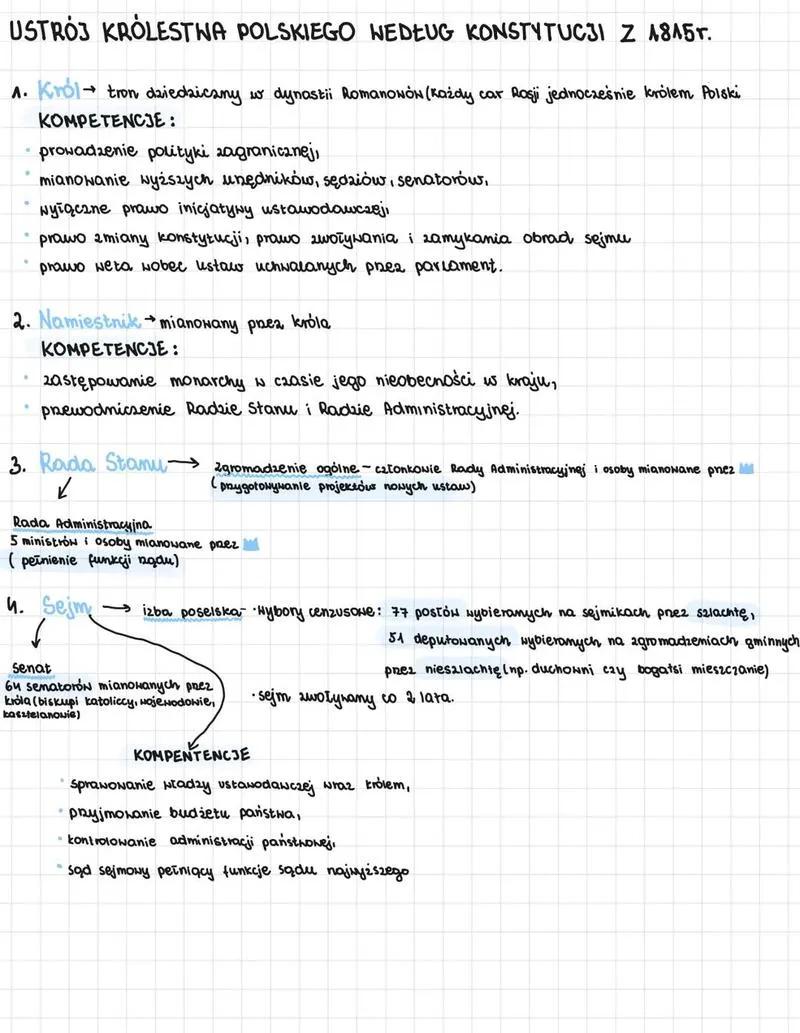 USTRÓJ KRÓLESTWA POLSKIEGO WEDŁUG KONSTYTUCJI Z 1815r.
1. Król → tron dziedziczny w dynastii Romanowów (każdy car Rosji jednocześnie królem Polski
KOMPETENCJE:
• prowadzenie polityki zagranicznej,
• mianowanie wyższych urzędników, sędziów, senatorów,
• wyłączne prawo inicjatywy ustawodawczej,
• prawo zmiany konstytucji, prawo zwoływania i zamykania obrad sejmu
• prawo weta wobec ustaw uchwalanych przez parlament.
2. Namiestnik → mianowany przez króla
KOMPETENCJE:
• zastępowanie monarchy w czasie jego nieobecności w kraju,
• przewodniczenie Radzie Stanu i Radzie Administracyjnej.
3. Rada Stanu → zgromadzenie ogólne – członkowie Rady Administracyjnej i osoby mianowane przez
(przygotowywanie projektów nowych ustaw)
Rada Administracyjna
5 ministrów i osoby mianowane przez
(pełnienie funkcji rządu)
4. Sejm → izba poselska – • Wybory cenzusowe: 77 posłów wybieranych na sejmikach przez szlachtę,
51 deputowanych wybieranych na zgromadzeniach gminnych
przez nieszlachtę (np. duchowni czy bogatsi mieszczanie)
• sejm zwoływany co 2 lata.
Senat
64 senatorów mianowanych przez
króla (biskupi katoliccy, wojewodowie,
kasztelanowie)
KOMPENTENCJE
• sprawowanie władzy ustawodawczej wraz królem,
• przyjmowanie budżetu państwa,
• kontrolowanie administracji państwowej,
• sąd sejmowy pełniący funkcje sądu najwyższego